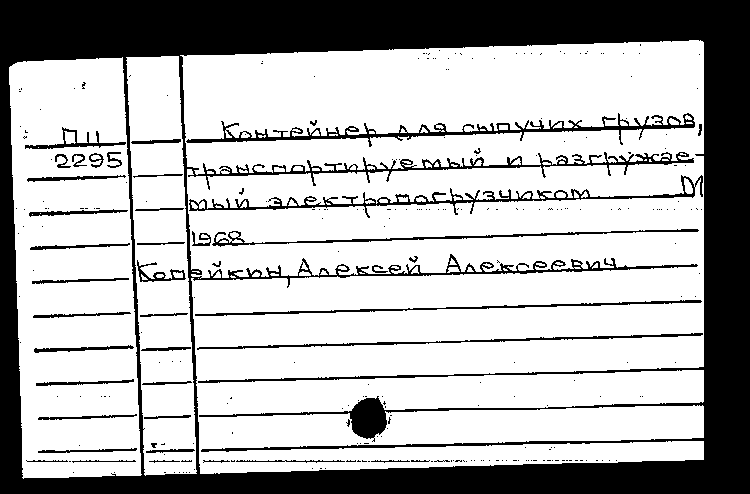 П11
2295
Контейнер для сыпучих грузов,
транспортируемый и разгружае-
мый электропогрузчиком М
1968
Копейкин, Алексей Алексеевич.